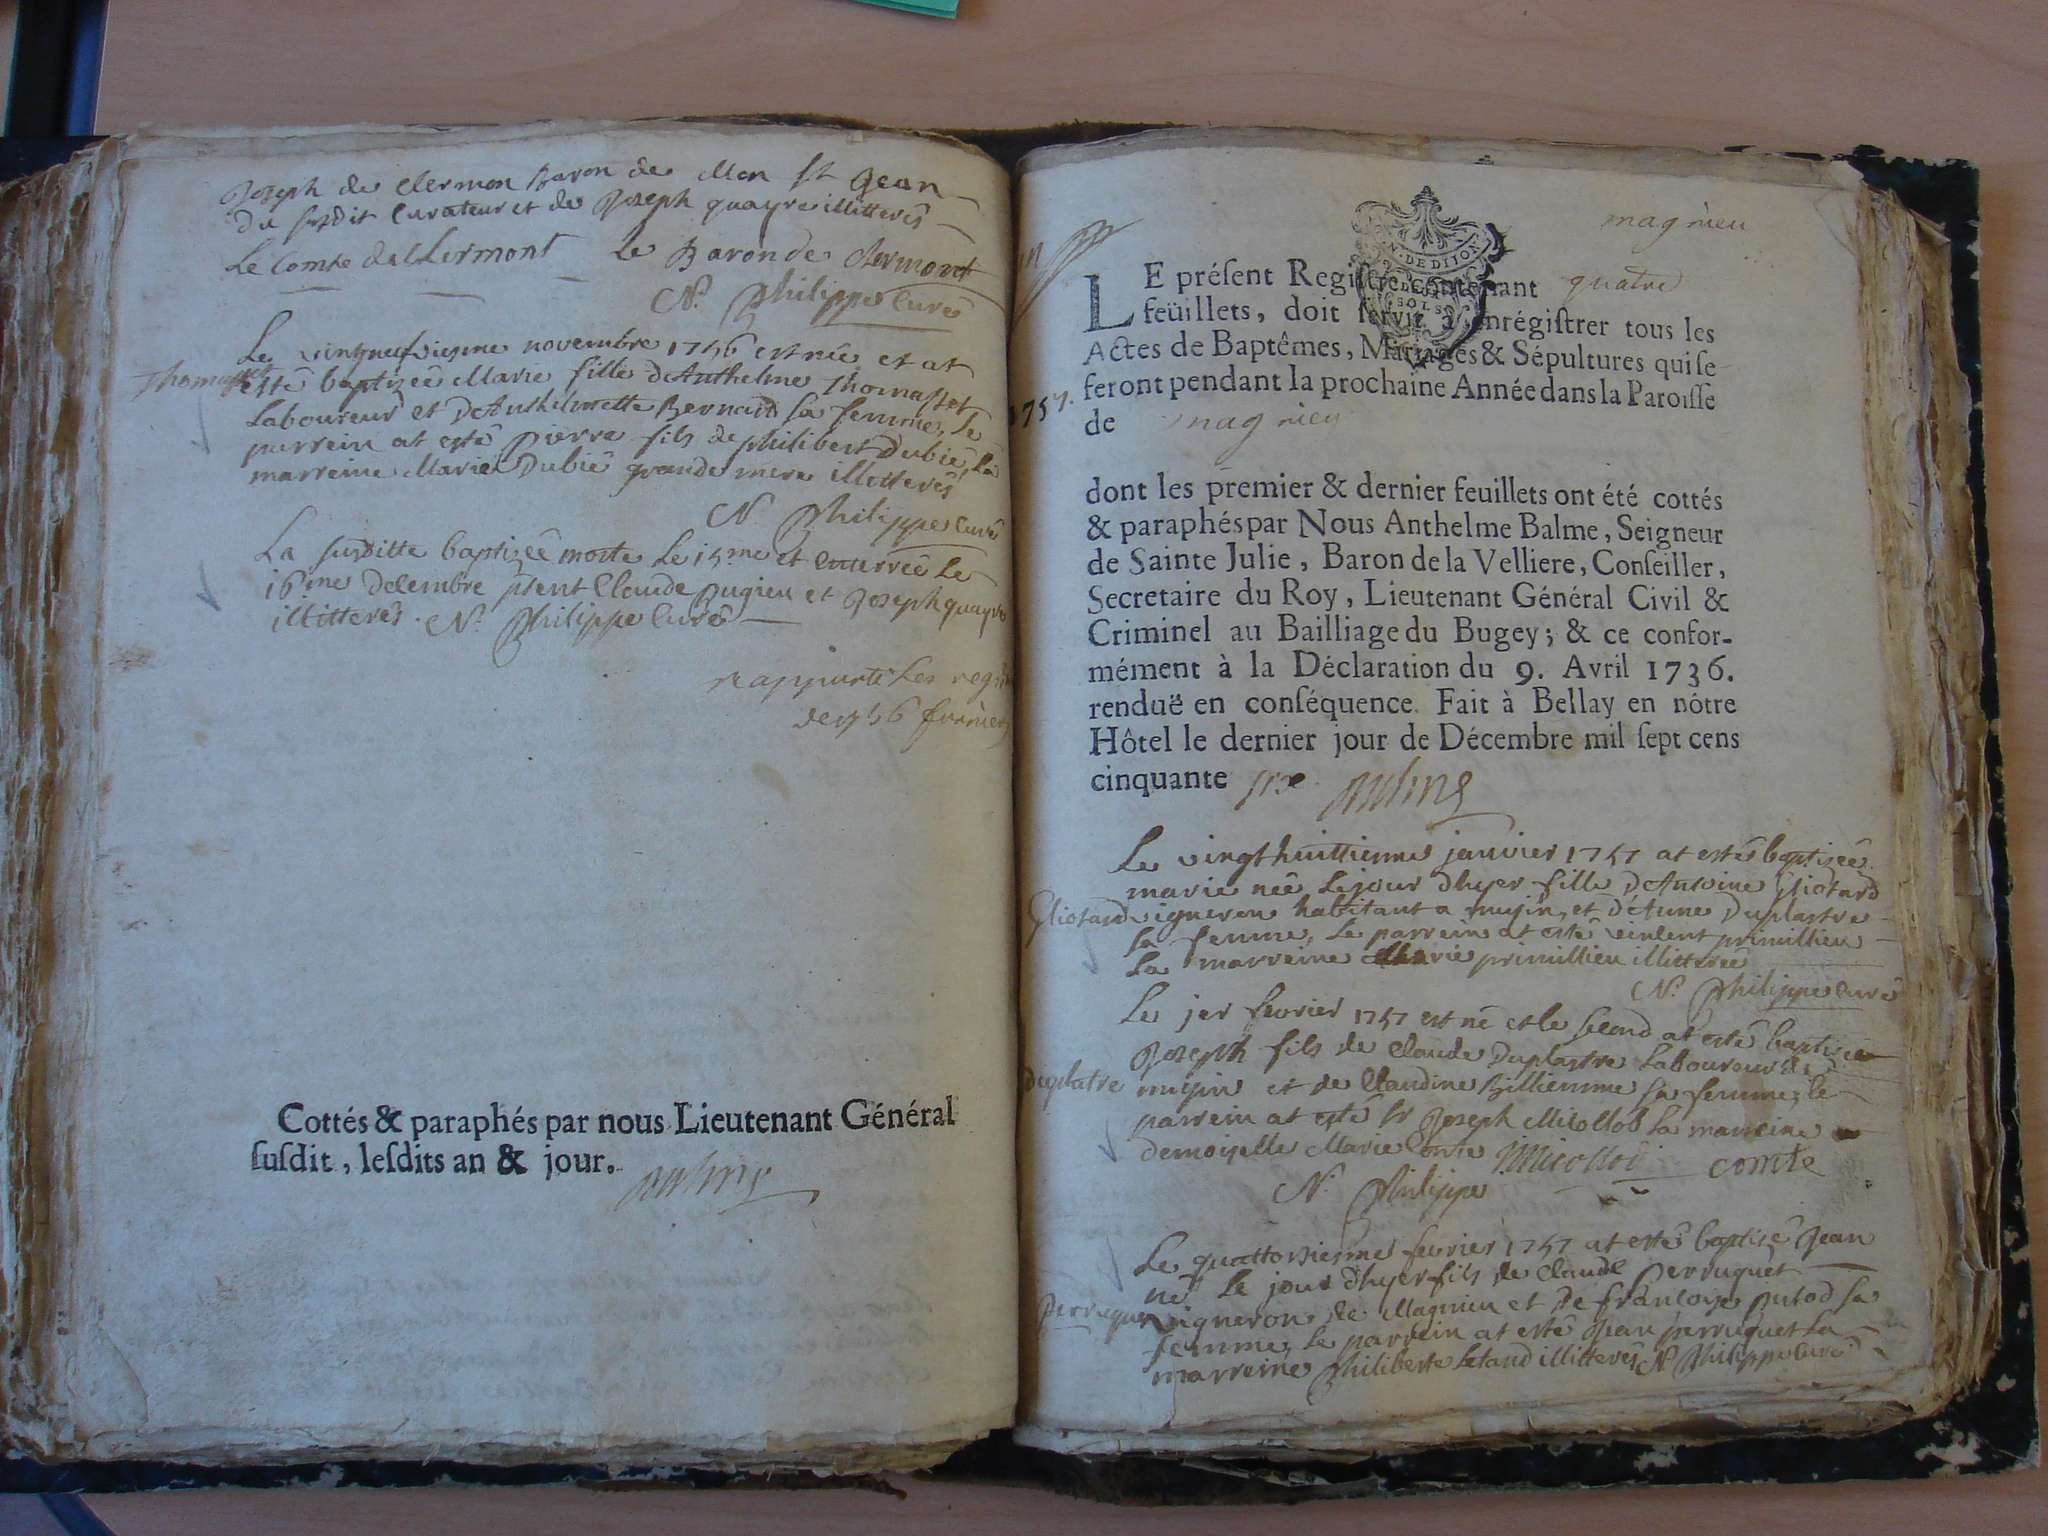 Joseph de Clermon Baron de Mon st Jean
du susdit Curateur et de Joseph quayre illitterés
Le Comte de Clermont Le Baron de Clermont
N. Philippe Curé
Le vingtneufviesme novembre 1756 est née et at
Thomasset
esté baptizée Marie fille d'Anthelme Thomasset
Laboureur et d'Anthelmette Bernard sa femme, Le
parrein at esté pierre fils de philibert Dubié, La
marreine Marie Dubié grande mere illitterés
N. Philippe Curé
La susditte baptizée morte Le 15.me et enterrée Le
16.me decembre pñent Claude pugieu et Joseph quayre
illitterés. N. Philippe Curé
rapporté Les
de 1756
Cottés & paraphés par nous Lieutenant Général
susdit, lesdits an & jour.
magnieu
N. DE DIJON
SOLS
LE présent Registre contenant quatre
feüillets, doit servir à enrégistrer tous les
Actes de Baptêmes, Mariages & Sépultures qui se
feront pendant la prochaine Année dans la Paroisse
1757.
de magnieu
dont les premier & dernier feuillets ont été cottés
& paraphés par Nous Anthelme Balme, Seigneur
de Sainte Julie, Baron de la Velliere, Conseiller,
Secretaire du Roy, Lieutenant Général Civil &
Criminel au Bailliage du Bugey; & ce confor-
mément à la Déclaration du 9. Avril 1736.
renduë en conséquence. Fait à Bellay en nôtre
Hôtel le dernier jour de Décembre mil sept cens
cinquante six
Le vingt huittiesme janvier 1757 at esté baptizée
marie née Le jour d'hyer fille d'Antoine Gliotard
Gliotard
vigneron habitant a musin, et d'Anne Duplastre
sa femme, Le parrein at esté vincent primillieu
La marreine Marie primillieu illitterée
N. Philippe Curé
Le 1er fevrier 1757 est né et le second at esté baptizé
Joseph fils de Claude Duplastre Laboureur de
duplatre
musin et de Claudine Billiemme sa femme, le
parrein at esté sr Joseph Micollod La marreine
demoiselle Marie Comte Micollod comte
N. Philippe
Le quattorziesme fevrier 1757 at esté baptizé Jean
né Le jour d'hyer fils de Claude Perruquet
Perruquet
vigneron de Magnieu et De francoise Putod sa
femme, Le parrein at esté Jean perruquet La
marreine Philiberte Letand illitterés N. Philippe Curé